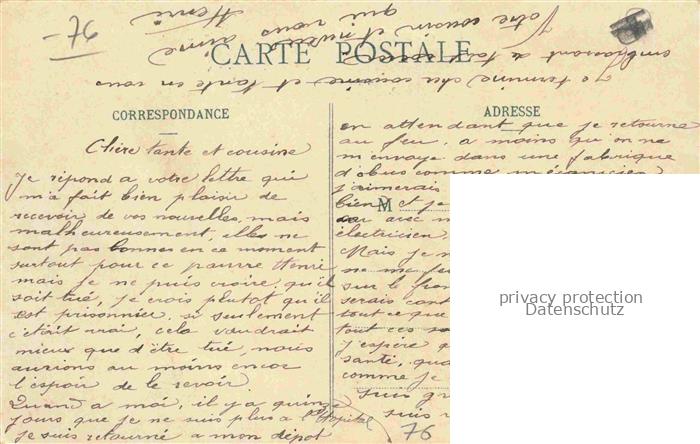 - 76
CARTE POSTALE
CORRESPONDANCE
Chère tante et cousine
Je répond a votre lettre qui
m'a fait bien plaisir de
recevoir de vos nouvelles, mais
malheureusement, elles ne
sont pas bonnes en ce moment
surtout pour ce pauvre Henri
mais je ne puis croire, qu'il
soit tué, je crois plutot qu'il
est prisonnier, si seulement
c'était vrai, cela vaudrait
mieux que d'être tué, nous
aurions au moins encor
l'espoir de le revoir.
Quand a moi, il y a quinze
jours que je ne suis plus a l'hopital
je suis retourné a mon dépot
ADRESSE
en attendant que je retourne
au feu, a moins qu'on ne
m'envoye dans une fabrique
d'obus comme mécanicien
j'aimerais
bien et je
M
car avec m
électricien.
Mais je n
ne me fe
sur le fron
serais cont
tout ce que
tout ces sa
j'espère q
santé, qua
comme je
suis gr
suis r
76
Je termine cher cousine et tante en vous
embrassant de
Votre cousin et neveu
qui vous aime
Henri
privacy protection
Datenschutz